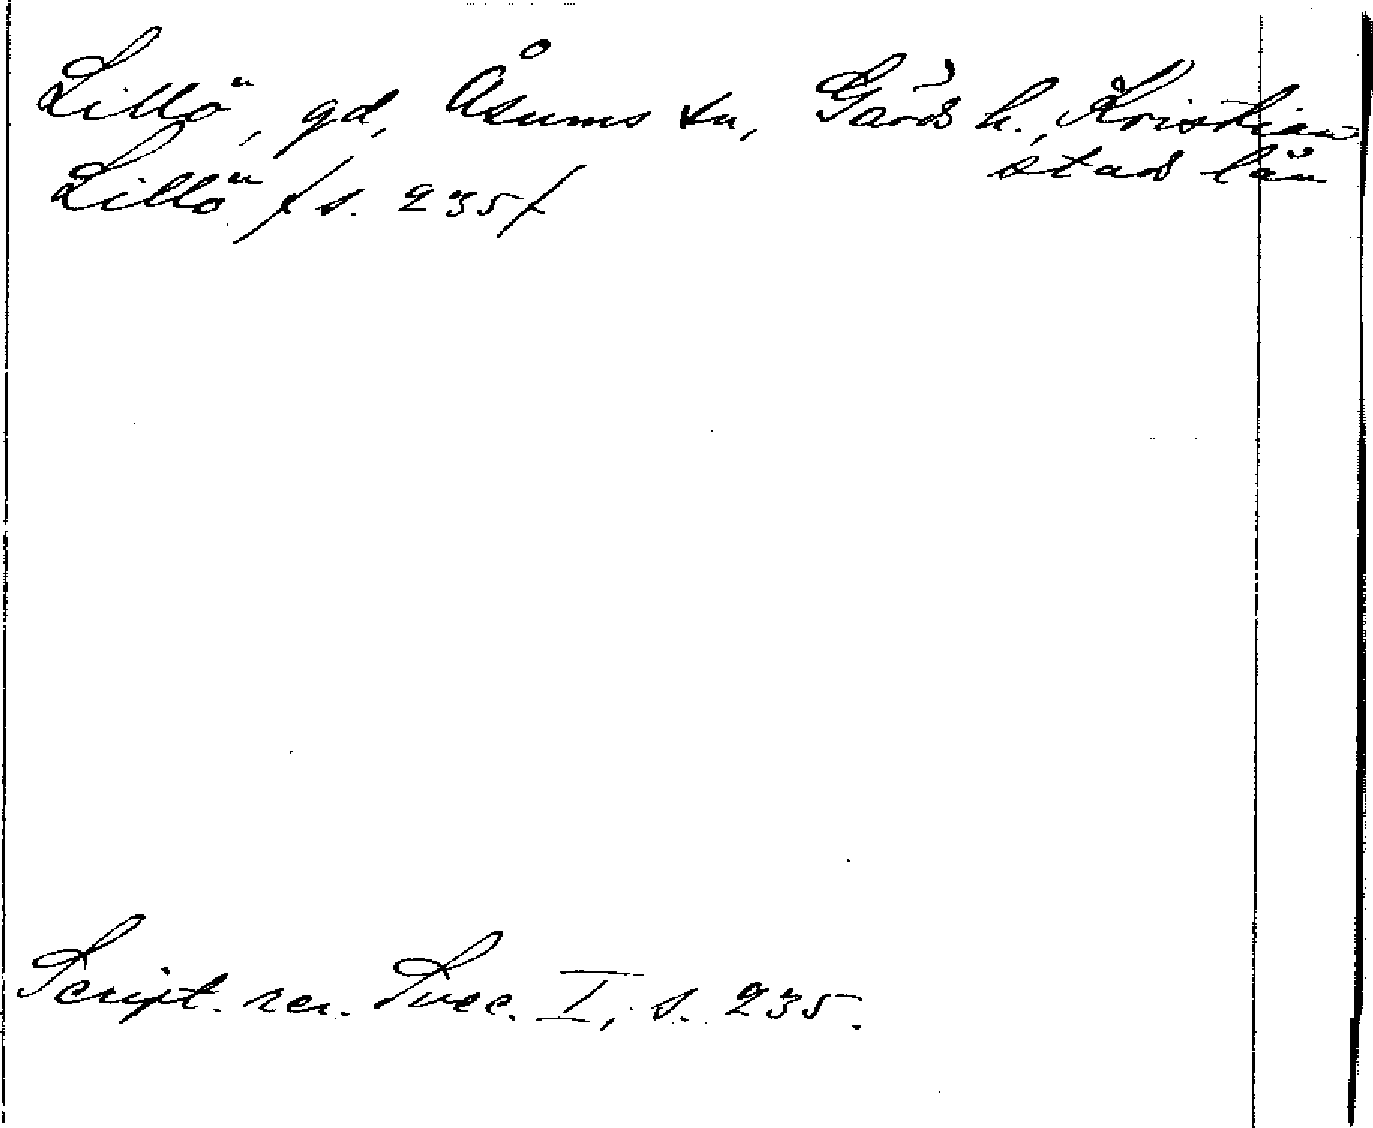 Lillö, gd, Åsums sn, Gärds h., Kristian
stads län
Lillö / s. 235/
Script. rer. Svec. I, s. 235.